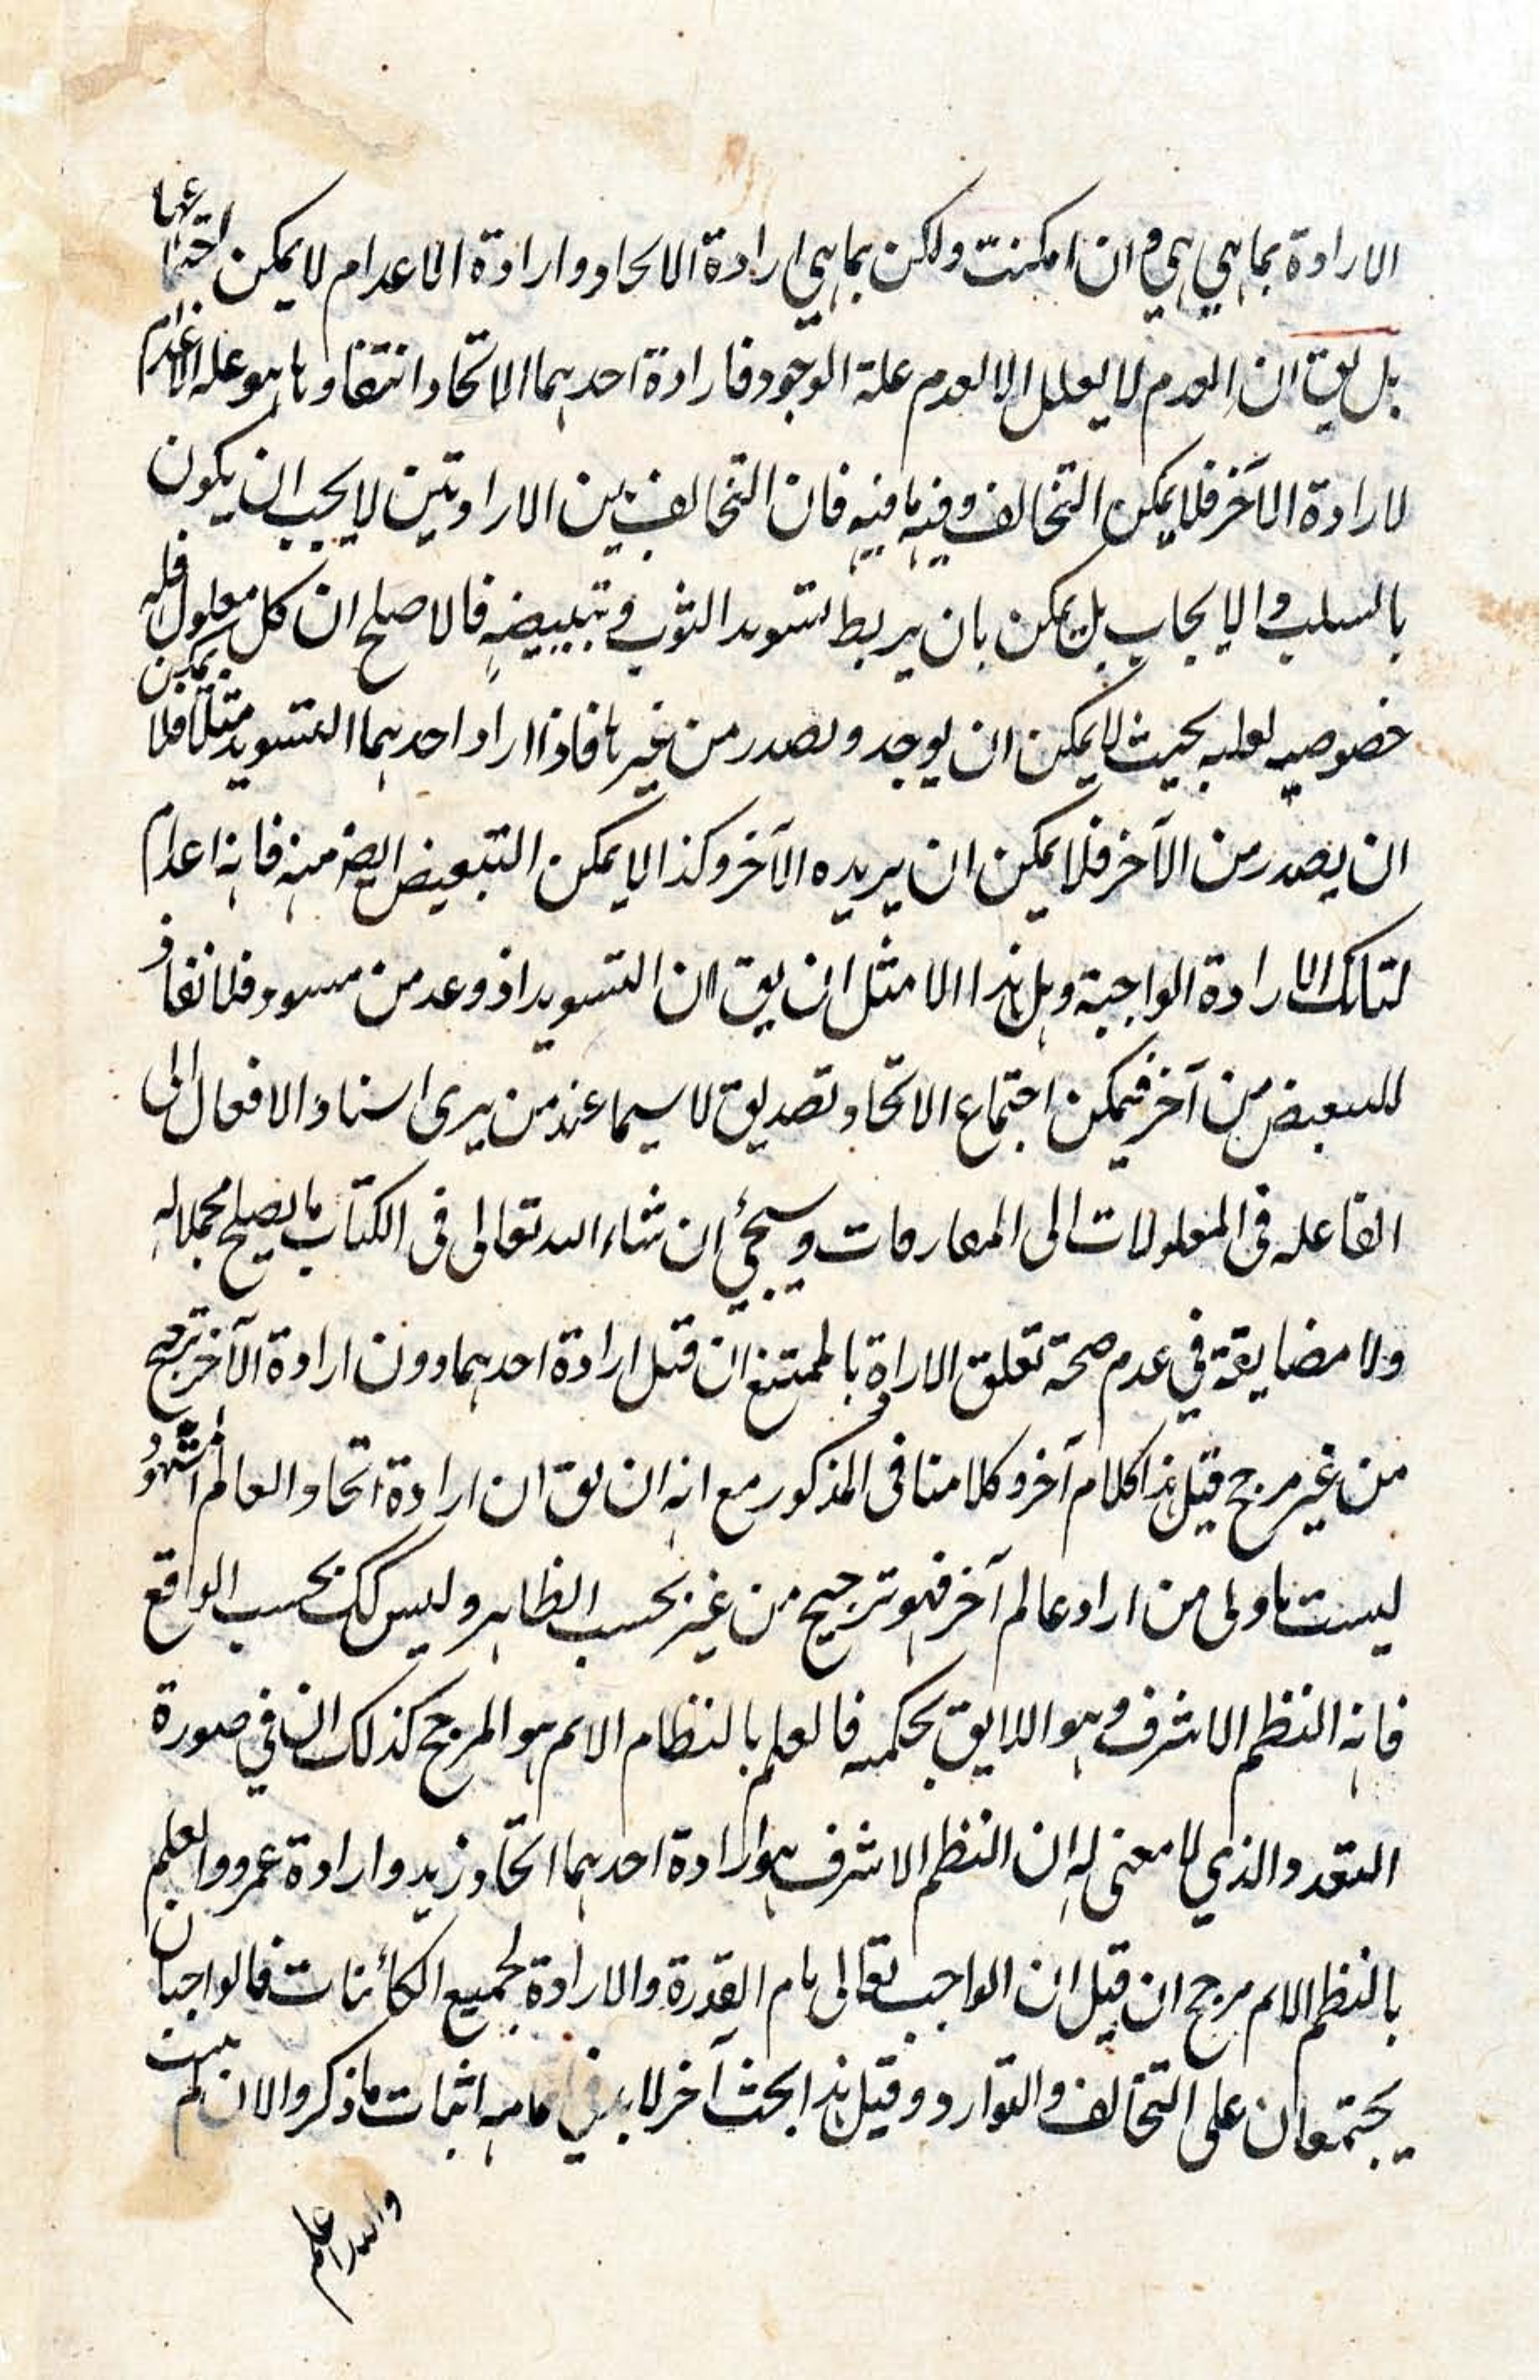 الارادة بما هي هي و ان امكنت ولكن بما هي ارادة الايحاد و ارادة الاعدام لا يمكن اجتماعهما
بل يق ان العدم لا يعلل الا لعدم علة الوجود فارادة احدهما الاتحاد انتفاوها هو عله الاعدام
لارادة الآخر فلا يمكن التخالف وفيه ما فيه فان التخالف بين الارادتين لا يجب ان يكون
بالسلب و الايجاب بل يمكن بان يربط لتسويد الثوب و تبييضه فالاصلح ان كل معلول فله
خصوصيه لعليه بحيث لا يمكن ان يوجد و يصدر من غيرها فاذا اراد احدهما التسويد مثلا فلا يمكن
ان يصدر من الآخر فلا يمكن ان يريده الآخر وكذا لا يمكن التبعيض ايضه منه فانه اعدام
لتلك الارادة الواجبة وهل هذا الا مثل ان يق ان التسويد اذ وعد من مسود فلما نفاو
للتبعيض من آخر فيمكن اجتماع الاتحاد تصديق لاسيما عند من يرى اسناد الافعال الى
الفاعله في المعلولات الى المفارقات و سيجئ ان شاء الله تعالى في الكتاب ما يصلح مجملا له
ولا مضايقة في عدم صحة تعلق الاراة بالممتنع ان قيل ارادة احدهما دون ارادة الآخر ترجيح
من غير مرجح قيل هذا كلام آخر و كلامنا في المذكور مع انه ان يق ان ارادة اتحاد العالم المشهود
ليست باولى من اراد عالم آخر فهو ترجيح من غير بحسب الظاهر و ليس كك بحسب الواقع
فانه النظم الاشرف و هو اللايق بحكمه فالعلم بالنظام الاتم هو المرجح كذلك ان في صورة
التعدد الذي لا معنى له ان النظم الاشرف هو ارادة احدهما اتحاد زيد و ارادة عمرو و العلم
بالنظم الاتم مرجح ان قيل ان الواجب تعالى تام القدرة و الارادة لجميع الكائنات فالواجبان
يجتمعان على التخالف و التوارد و قيل هذا بحث آخر لابد في اثبات ما ذكر والا ان لم يثبت
والله اعلم